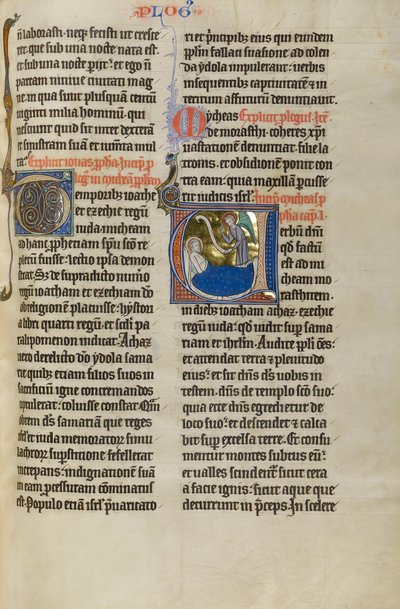 PLOG᷒
ñ laborasti. neq; fecisti ut cresce
ret. que sub una nocte nata est.
et sub una nocte p̄iit: et ego ñ
parcam niniue ciuitati mag
ne. in qua sunt plusquam centū
uiginti milia hominum. qui
nesciunt quid sit inter dexterā
et sinistram suā et iumēta mul
ta. Explicit ionas ꝓpha. Incip̄ p̄
log᷒ in micheam ꝓphā
Temporibus ioathe
et ezechie regū
iuda. micheam
ad hanc ꝓphetiam sp̄u sc̄o re
pletum fuisse. lectio ip̄sa demon
strat. Sʒ de supradicto nūīo
regū ioatham et ezechiam dō
ob religionē placuisse. hyston
a libri quarti regū. et sc̄di pa
ralipomenon indicat. Achaz
uero derelicto dō ydola sama
rie quib; etiam filios suos in
sacrificiū igne concremandos
optulerat. coluisse constat. Qm̄
obrem dn̄s samariā que reges
isrl̄ et iuda memoratos simu
lachrorʒ supstitione fefellerat
increpans: indignationē suā
in eam ꝓcessuram cōminatus
est. Populo etiā isrl̄ p̄uaricato
ri et p̄ncipib; eius qui eundem
ppl̄m fallaci suasione ad colen
da ydola impulerant: uerbis
insequentib; captiuitatē et in
teritum affuturū denuntiauit.
Mycheas Explicit plogus. Itē.
de morasthi. coheres xp̄i
uastationē denuntiat filie la
tronis. et obsidionem ponit con
tra eam: quia maxillā pcusse
rit iudicis isrl̄. Incip̄ micheas ꝓ
pha cap. I.
Verbū dn̄i.
qd̄ factū
est ad mi
cheam mo
rasthitem.
in dieb; ioatham achaz. ezechie
regū iuda: qd̄ uidit sup sama
riam et ihrl̄m. Audite ppl̄i om̄s:
et attendat terra et plenitudo
eius: et sit dn̄s d̄s uobis in
testem. dn̄s de templo sc̄o suo:
quia ecce dn̄s egredietur de
loco suo: et descendet et calca
bit sup excelsa terre. Et consu
mentur montes subtus eū:
et ualles scindent̄. sicut cera
a facie ignis: sicut aque que
decurrunt in p̄ceps. In scelere